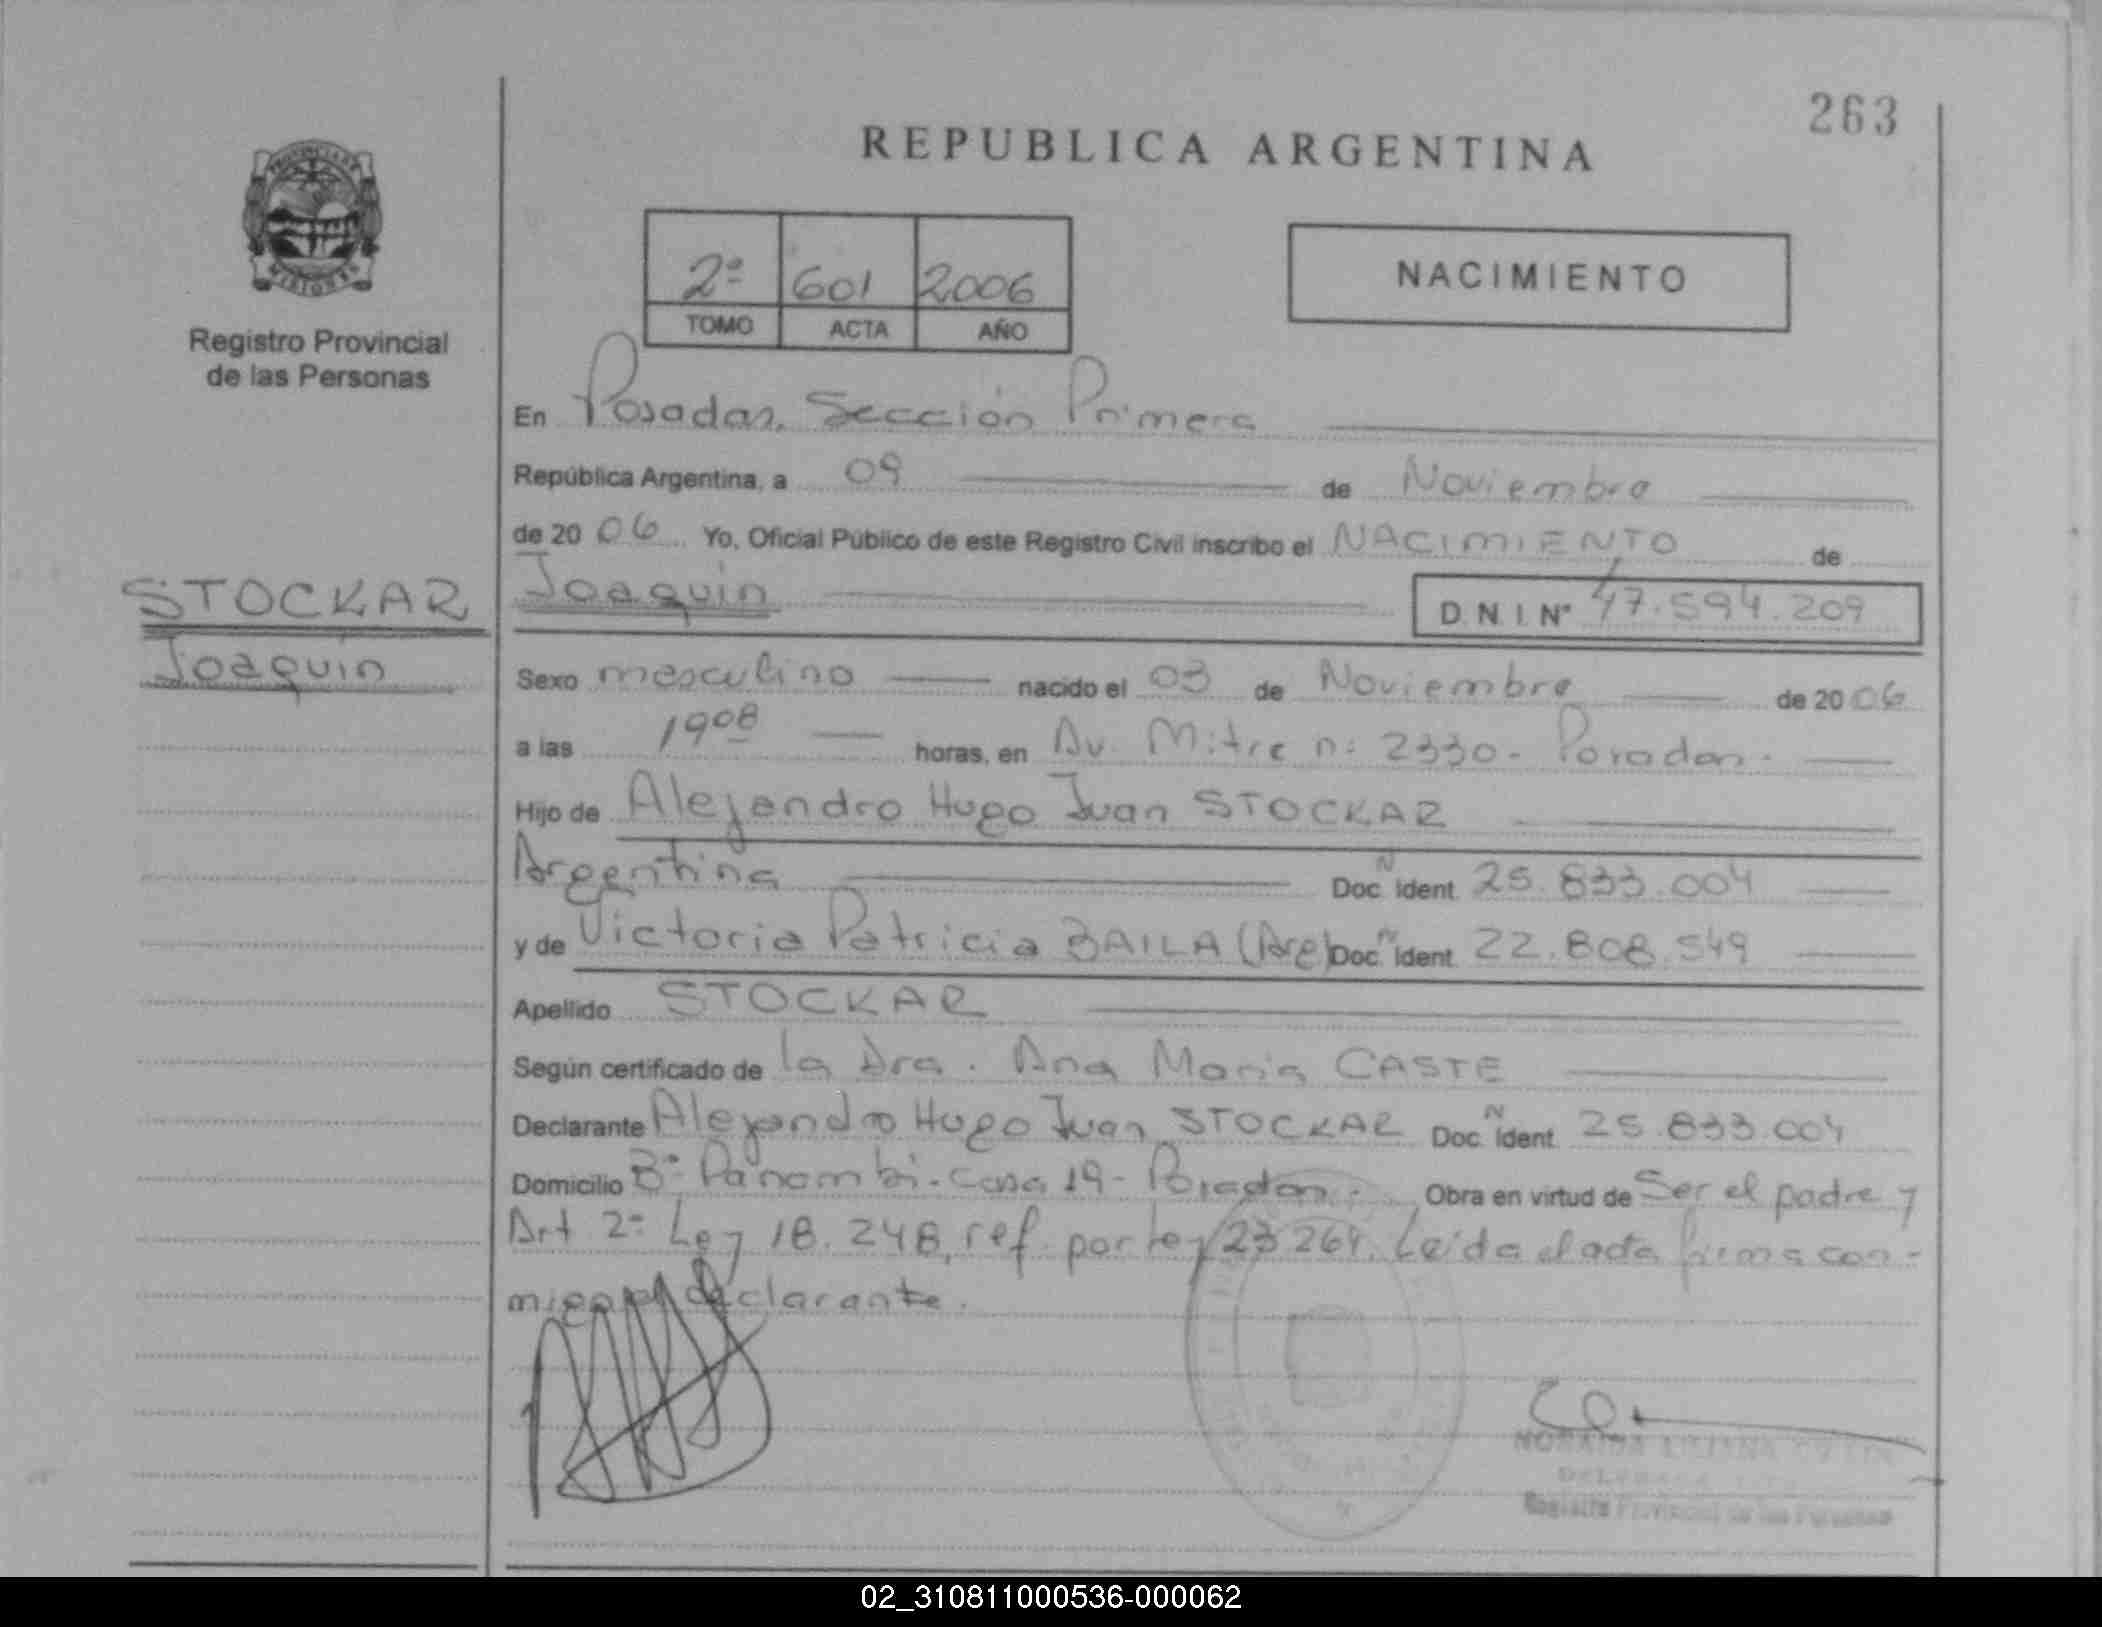 263
REPUBLICA ARGENTINA
PROVINCIA DE
MISIONES
Registro Provincial
de las Personas
2º 601 2006
TOMO ACTA AÑO
NACIMIENTO
En Posadas, Sección Primera
República Argentina, a 09 de Noviembre
de 2006 Yo, Oficial Público de este Registro Civil inscribo el NACIMIENTO de
STOCKAR
Joaquin
Joaquin D.N.I. Nº 47.594.209
Sexo masculino nacido el 03 de Noviembre de 2006
a las 19 08 horas, en Av. Mitre nº 2330 - Posadas.
Hijo de Alejandro Hugo Juan STOCKAR
Argentina Doc. Ident. 25.833.004
y de Victoria Patricia BAILA (Arg) Doc. Ident. 22.808.549
Apellido STOCKAR
Según certificado de la Dra. Ana Maria CASTE
Declarante Alejandro Hugo Juan STOCKAR Doc. Ident. 25.833.004
Domicilio Bº Panambi - Casa 19 - Posadas. Obra en virtud de Ser el padre y
Art 2º Ley 18.248, ref. por ley 23264. Leida el acta firma con-
migo el declarante.
Registro Provincial de las Personas
02_310811000536-000062